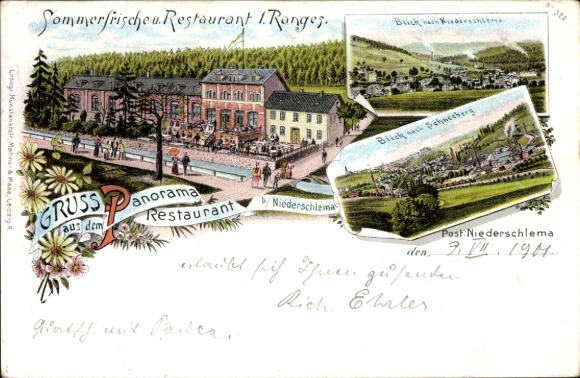 Sommerfrische u. Restaurant I. Ranges.
N° 388
Blick nach Niederschlema
Blick nach Schneeberg
Lithogr. Kunstanstalt Mehner & Maas, Leipzig R.
GRUSS
aus dem
Panorama
Restaurant
b/ Niederschlema
Post Niederschlema
den, 9. VII. 1901
erlaubt sich Ihnen zusenden
Rich. Ehrler
Quatsch mit